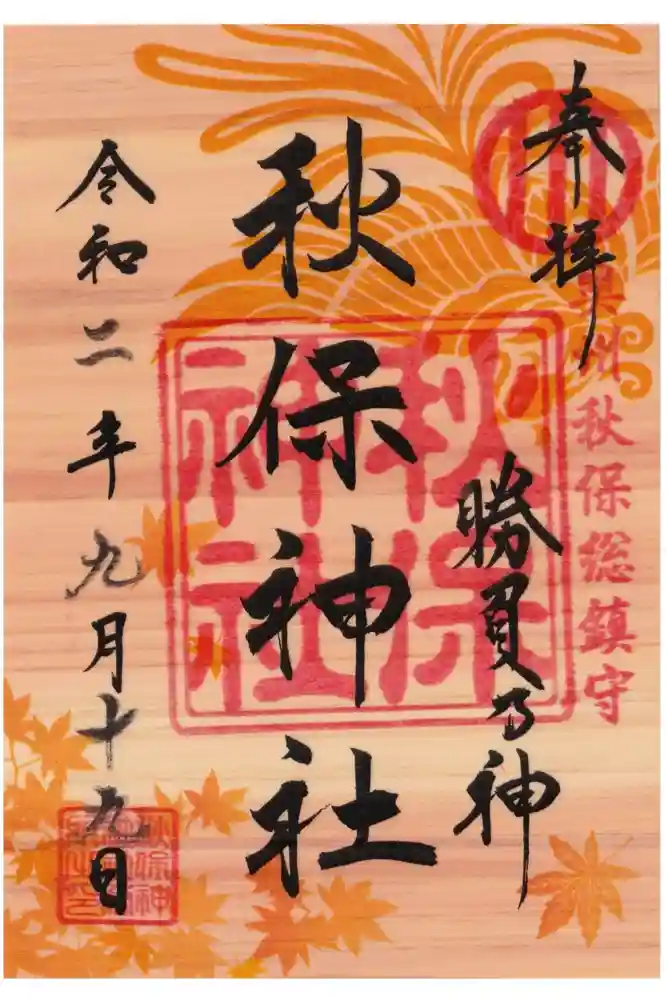 奉拝
奥州秋保総鎮守
勝負乃神
秋保神社
秋保
神社
令和二年九月十九日